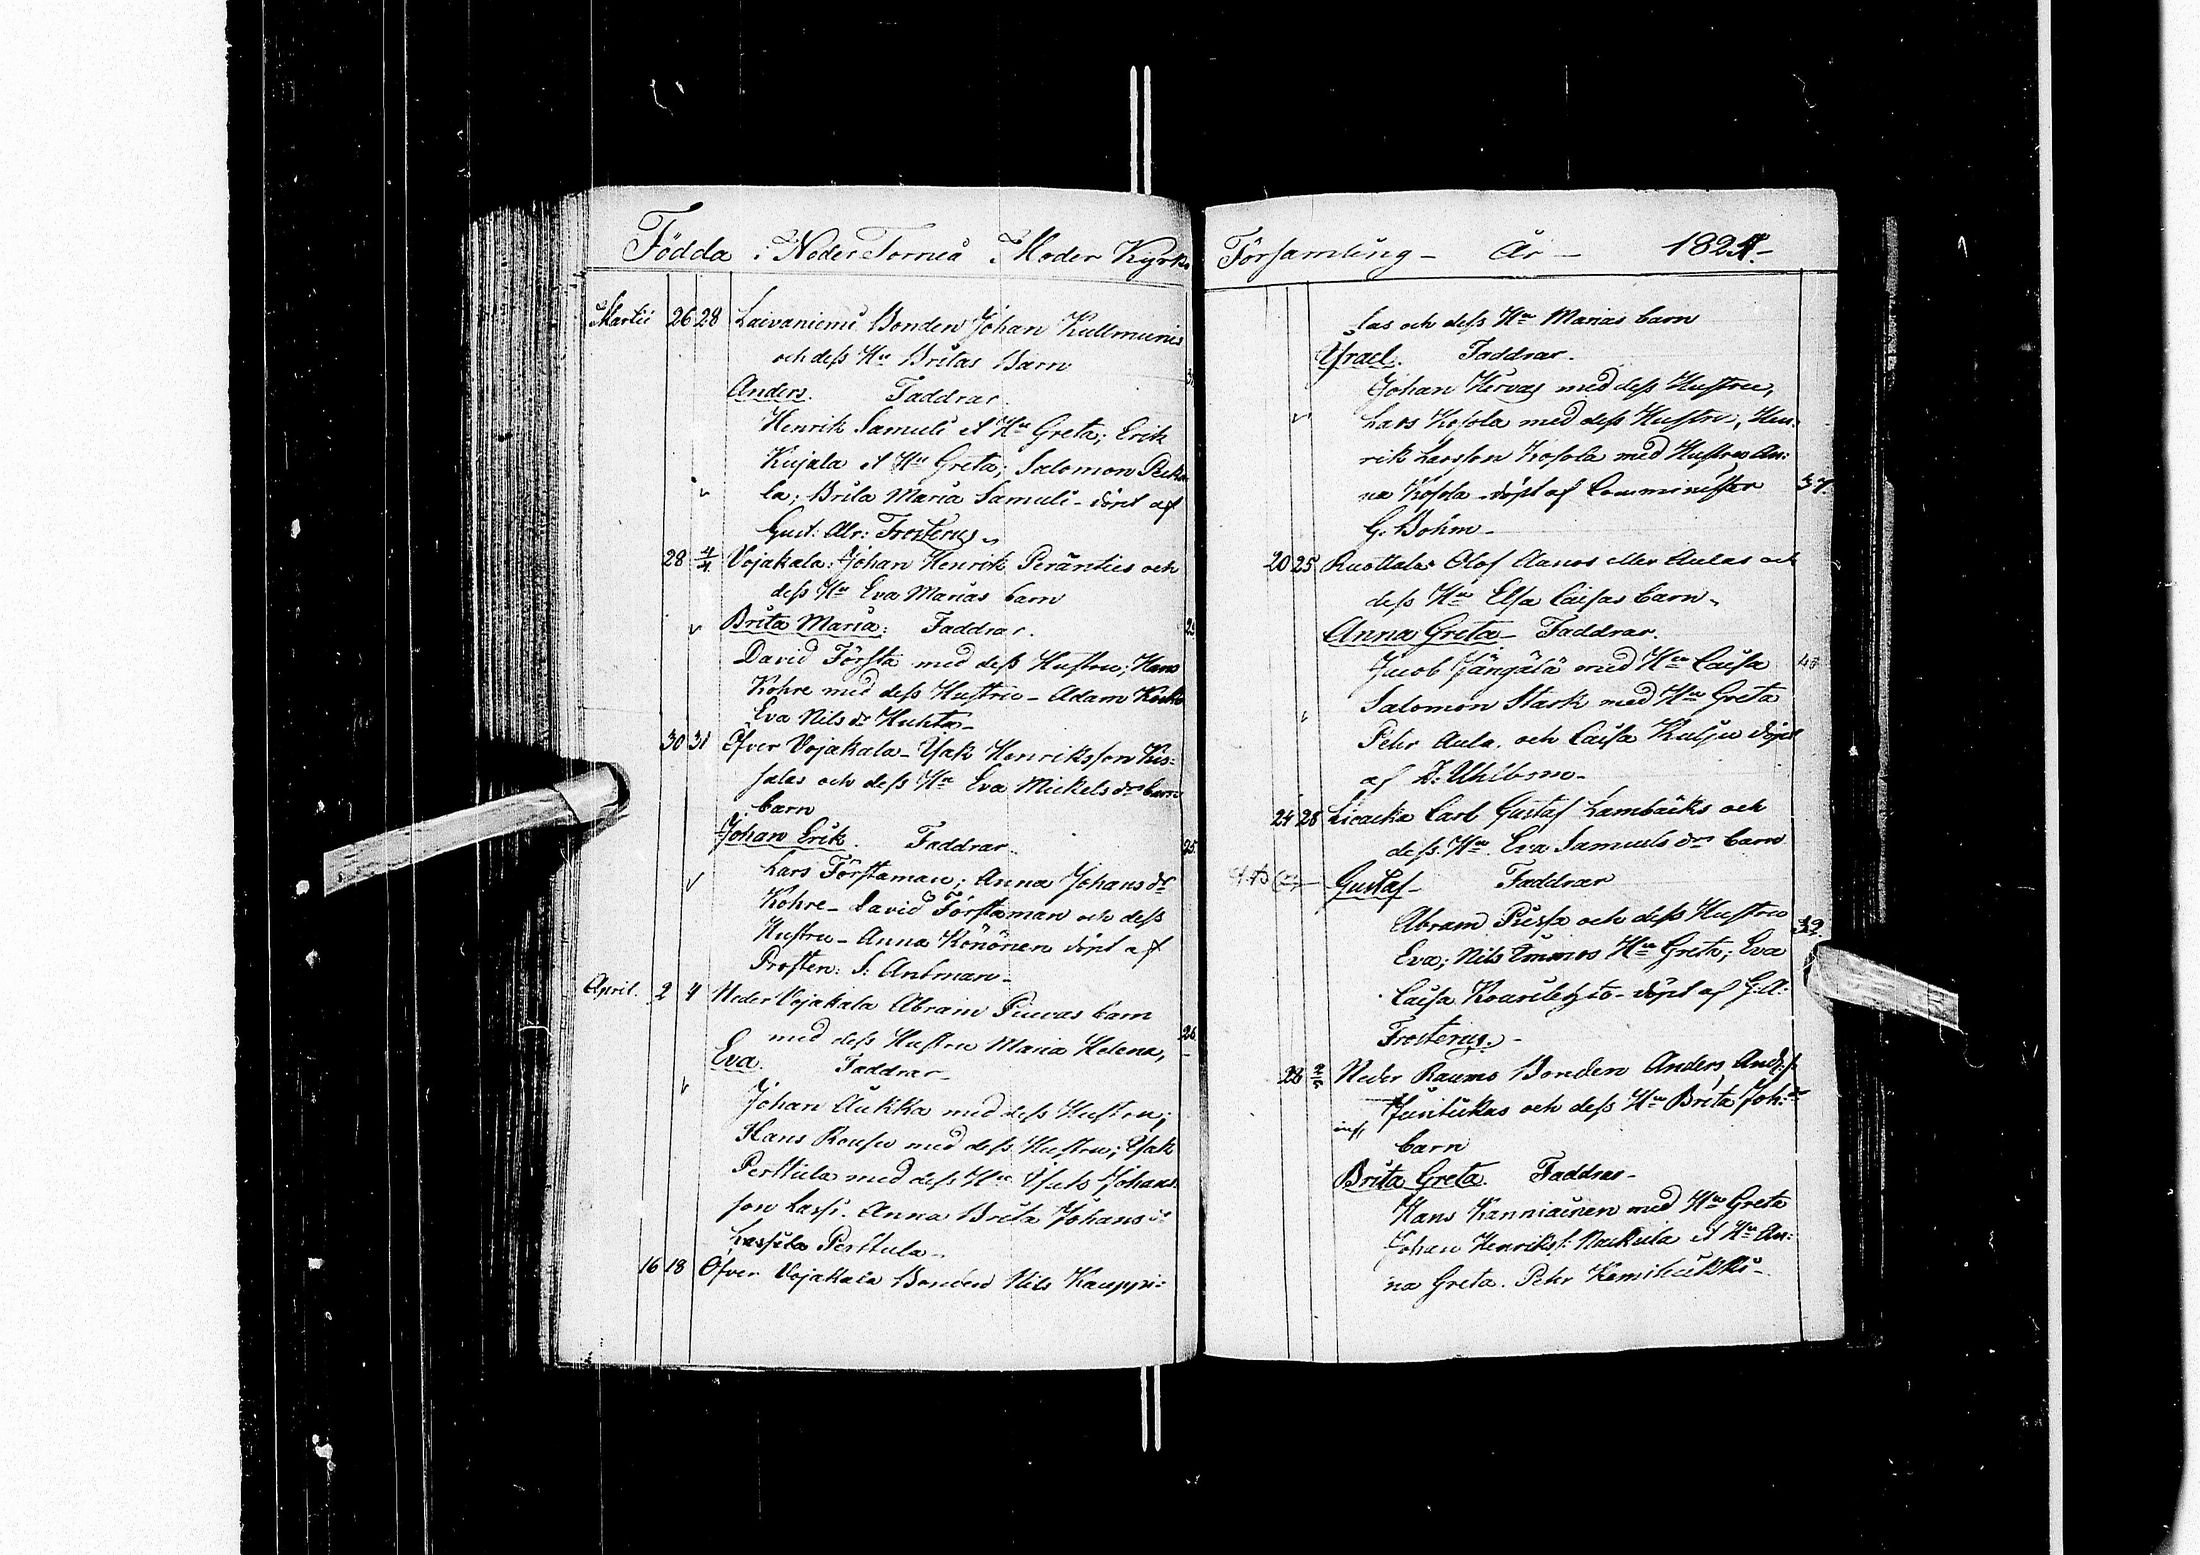 Födda i Neder Torneå Moder Kyrko
Martii 26 28 Laivaniemi Bonden Johan Kullmunis
och dess Hu Britas Barn
Anders. Faddrar.
Henrik Samuli et Hu Greta; Erik
Kujala et Hu Greta; Salomon
la; Brita Maria Samuli - döpt af
Gust: Abr: Frosterus
28 4/4 Vojakala: Johan Henrik Peränties och
dess Hu Eva Marias barn
Brita Maria: Faddrar. 25
David Första med dess Hustru; Hans
Kohre med dess Hustru - Adam
Eva Nils dr Huhta
30 31 Öfver Vojakala - Isak Henriksson Kis=
salas och dess Hu Eva Mickels dr barn
barn
Johan Erik. Faddrar. 25.
Lars Förstaman; Anna Johans dr
Kohre - David Förstaman och dess
Hustru - Anna Könönen döpt af
Prosten: S: Antman -
April. 2 4 Neder Vojakala Abram Piuvas barn
med dess Hustru Maria Helena, 26
Eva. Faddrar -
Johan Aukka med dess Hustru;
Hans Rousu med dess Hustru; Isak
Perttula med dess Hu Isak Johans
son Lassi. Anna Brita Johans dr
Lassila Perttula -
16 18 Öfver Vojakala Bonden Nils Kauppi=
Församling - År - 1824.-
las och dess Hu Marias barn
Israel. Faddrar.
Johan Hervas med dess Hustru,
Lars Kossola med dess Hustru, Hen=
rik Larsson Kossola med Hustru An=
na Kossola - döpt af Comminister 37.
G. Bohm -
20 25 Ruottala Olof Aanos eller Aulas och
dess Hu Elsa Caisas barn
Anna Greta - Faddrar.
Jacob Jängälä med Hu Caisa 43
Salomon Stark med Hu Greta
Pehr Aula. och Caisa Kulju döpt
af D: Uhlbrno -
24 28 Livacka Carl Gustaf Lambäcks och
dess Hu Eva Samuels dr barn
Gustaf - Faddrar
Abram Piessa och dess Hustru 32
Eva; Nils Emmos Hu Greta; Eva
Caisa Kourilehto - döpt af G:A:
Frosterus. -
26 2/5 Neder Raumo Bonden Anders And:s:
Juntikas och dess Hu Brita Joh: dr
barn
Brita Greta. Faddrar -
Hans Kanniainen med Hu Greta
Johan Henriks s: Naukula et Hu An=
na Greta. Pehr Kemiläkki -